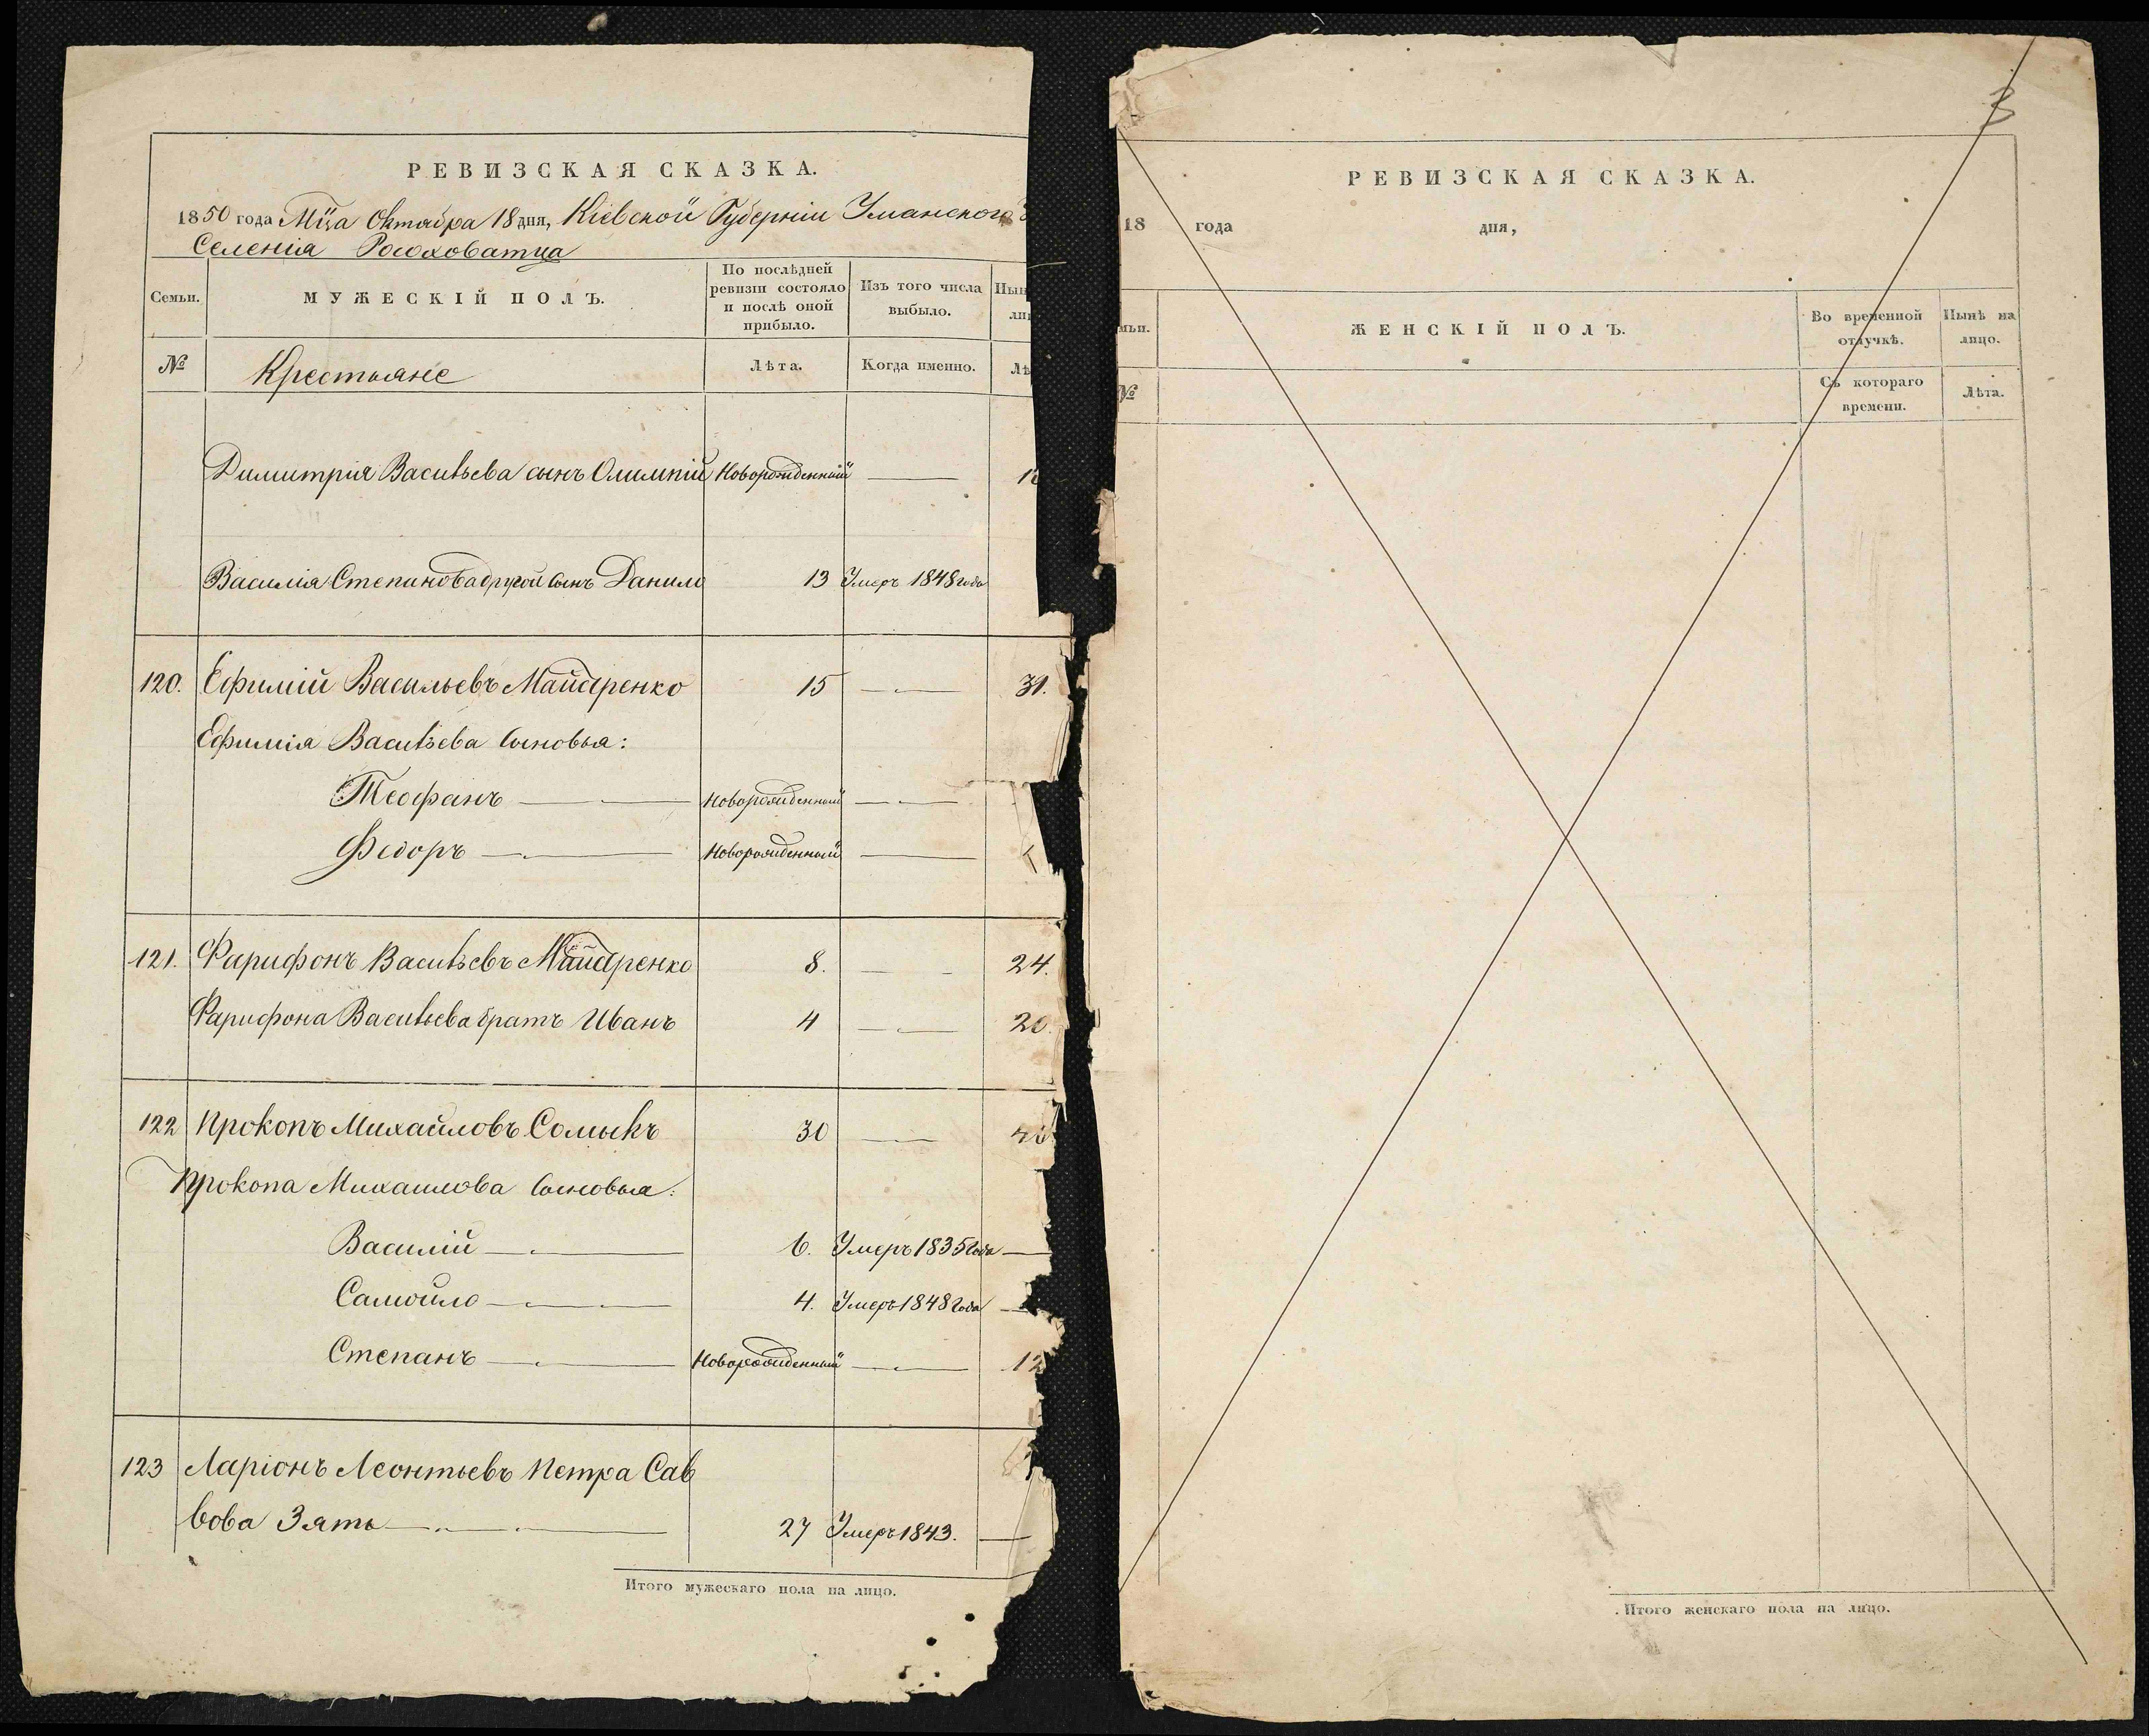 РЕВИЗСКАЯ СКАЗКА.
1850 года Мца Октября 18 дня, Кіевской Губерніи Уманского
Селенія Росоховатца
Семьи.
МУЖЕСКІЙ ПОЛЪ.
По послѣдней ревизіи состояло и послѣ оной прибыло.
Изъ того числа выбыло.
№
Крестьяне
Лѣта.
Когда именно.
Димитрія Васильева сынъ Олимпій Новорожденный —
Василія Степанова другой сынъ Данило 13 Умеръ 1848 года
120. Ефимій Васильевъ Майдренко 15 — 31.
Ефимія Васильева Сыновья:
Теофанъ — Новорожденный —
Федоръ — Новорожденный —
121. Фарифонъ Васильевъ Майдренко 8. — 24.
Фарифона Васильева братъ Иванъ 4 — 20.
122 Прокопъ Михайловъ Сомыкъ 30 —
Прокопа Михаилова Сыновья:
Василій — 6. Умеръ 1835 Года —
Самойло — 4. Умеръ 1848 Года —
Степанъ — Новорожденный — 12
123 Ларіонъ Леонтьевъ Петра Сав
вова Зять — 27 Умеръ 1843. —
Итого мужескаго пола на лицо.
3
РЕВИЗСКАЯ СКАЗКА.
18 года дня,
ЖЕНСКІЙ ПОЛЪ.
Во временной отлучкѣ.
Нынѣ на лицо.
№
Съ котораго времени.
Лѣта.
Итого женскаго пола на лицо.